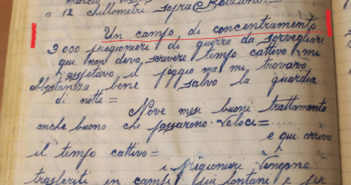 a 12 chillometri sopra Bolzano=
Un campo di concentramento
9.000 prigionieri di guerra da sorvegliare
qui non devo scrivere tempo cattivo, mi
aspettavo il peggio ma mi trovavo
abbastanza bene salvo la guardia
di notte=
Nove mesi buoni trattamento
anche buono che passarono veloci=
e qui arriva
il tempo cattivo=
i Prigionieri Vengono
trasferiti in campi più lontani e per